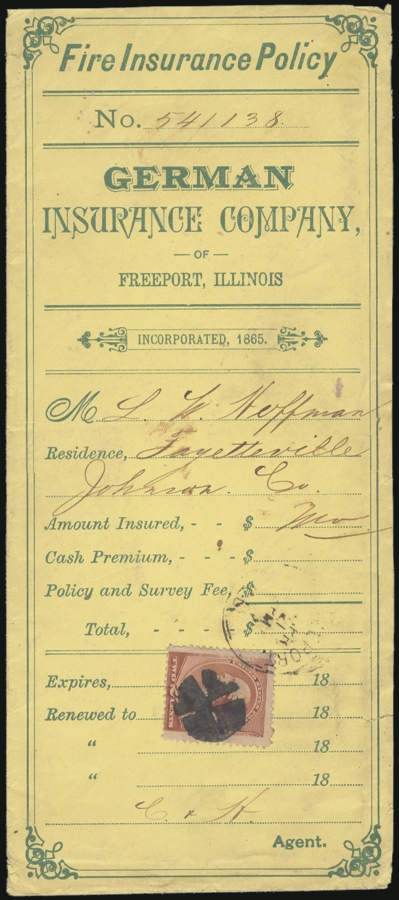 Fire Insurance Policy
No. 541138.
GERMAN
INSURANCE COMPANY,
— OF —
FREEPORT, ILLINOIS
INCORPORATED, 1865.
M L. W. Hoffman
Residence, Fayetteville
Johnson. Co.
Amount Insured, - - $ Mo
Cash Premium, - - - $
Policy and Survey Fee, $
Total, - - - $
Expires, 18
Renewed to 18
" 18
" 18
C. & H.
Agent.